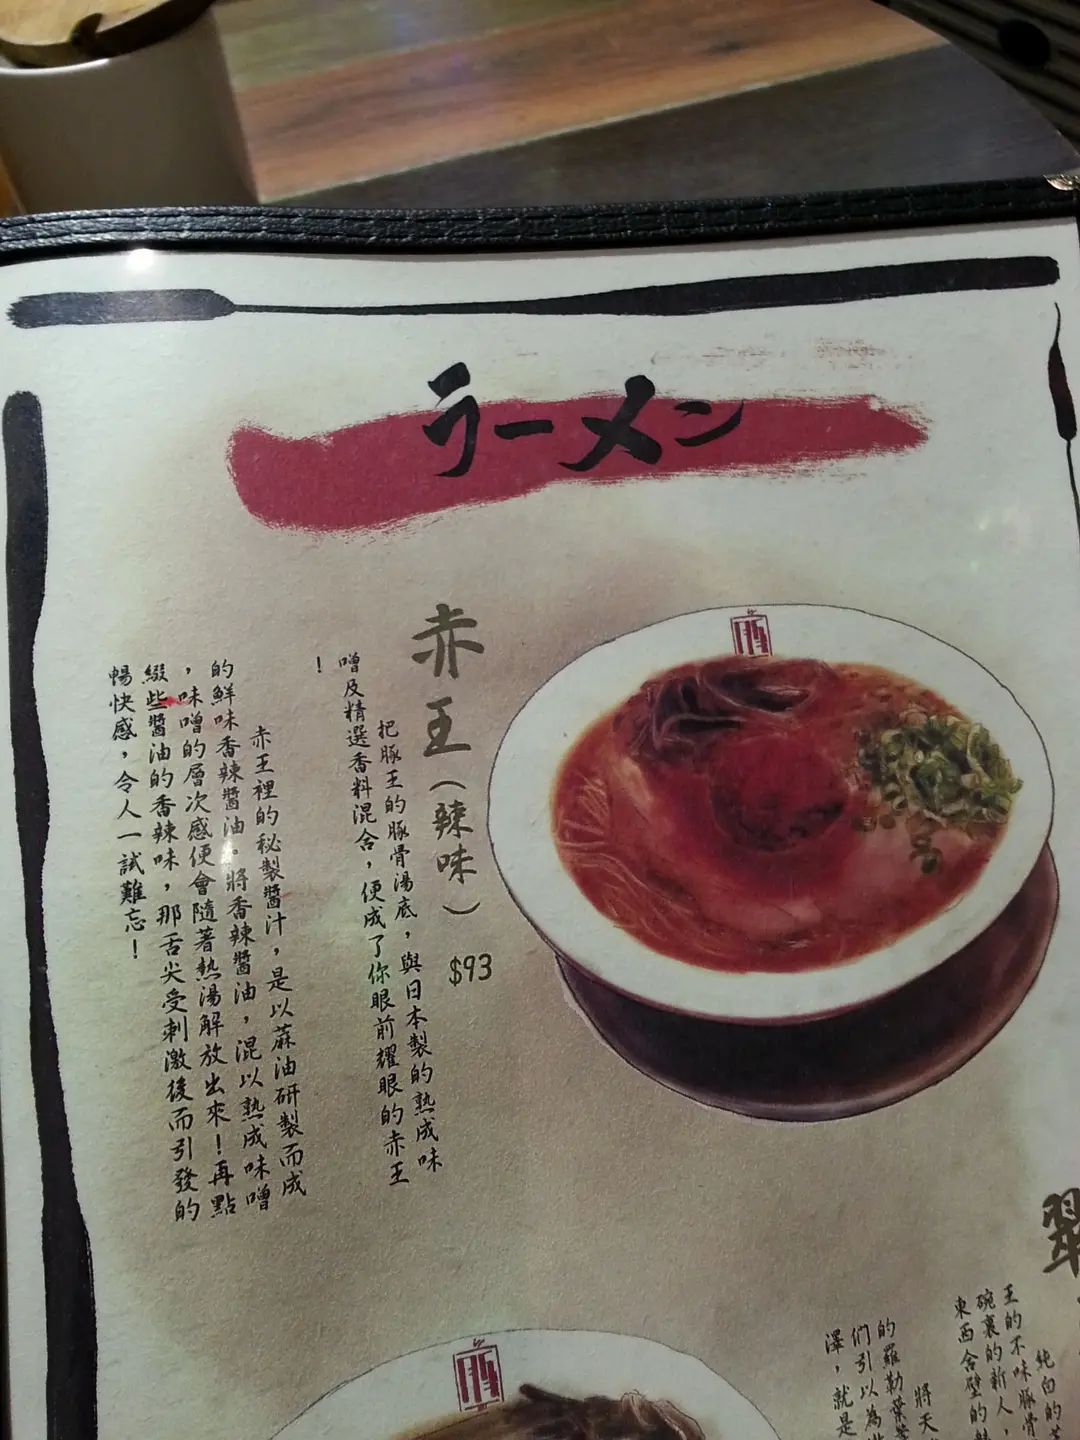 ラーメン
赤王(辣味)
$93
把豚王的豚骨湯底，與日本製的熟成味
噌及精選香料混合，便成了你眼前耀眼的赤王
！
赤王裡的秘製醬汁，是以蔴油研製而成
的鮮味香辣醬油。將香辣醬油，混以熟成味噌
，味噌的層次感便會隨著熱湯解放出來！再點
綴些醬油的香辣味，那舌尖受刺激後而引發的
暢快感，令人一試難忘！
翠
純白的
王的不味豚骨
碗裏的新人，
東西合壁的
將天
的羅勒葉
們引以為
澤，就是